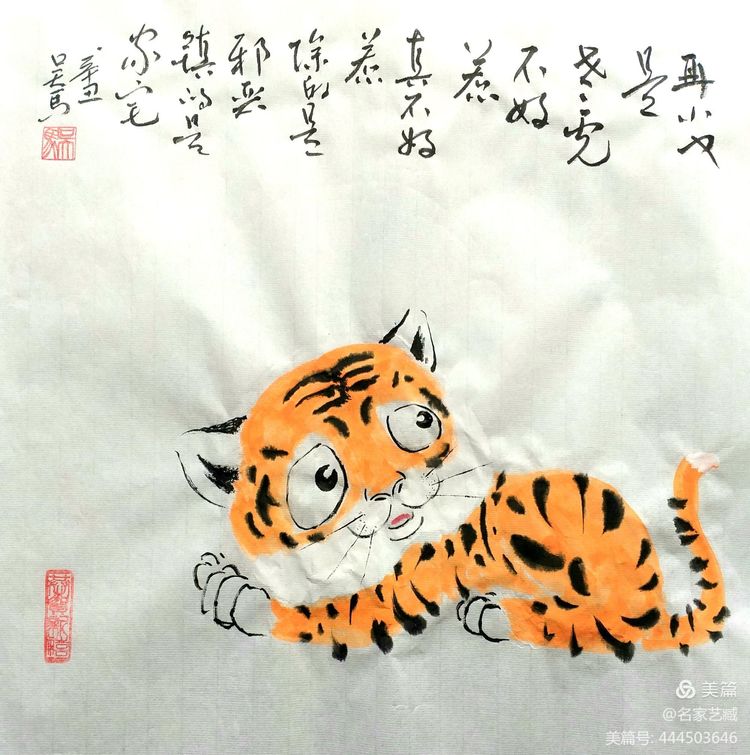 再小也
是
老虎
不好
惹
真不好
惹
除的是
邪恶
镇的是
家宅
美篇
@名家艺臧
美篇号: 444503646